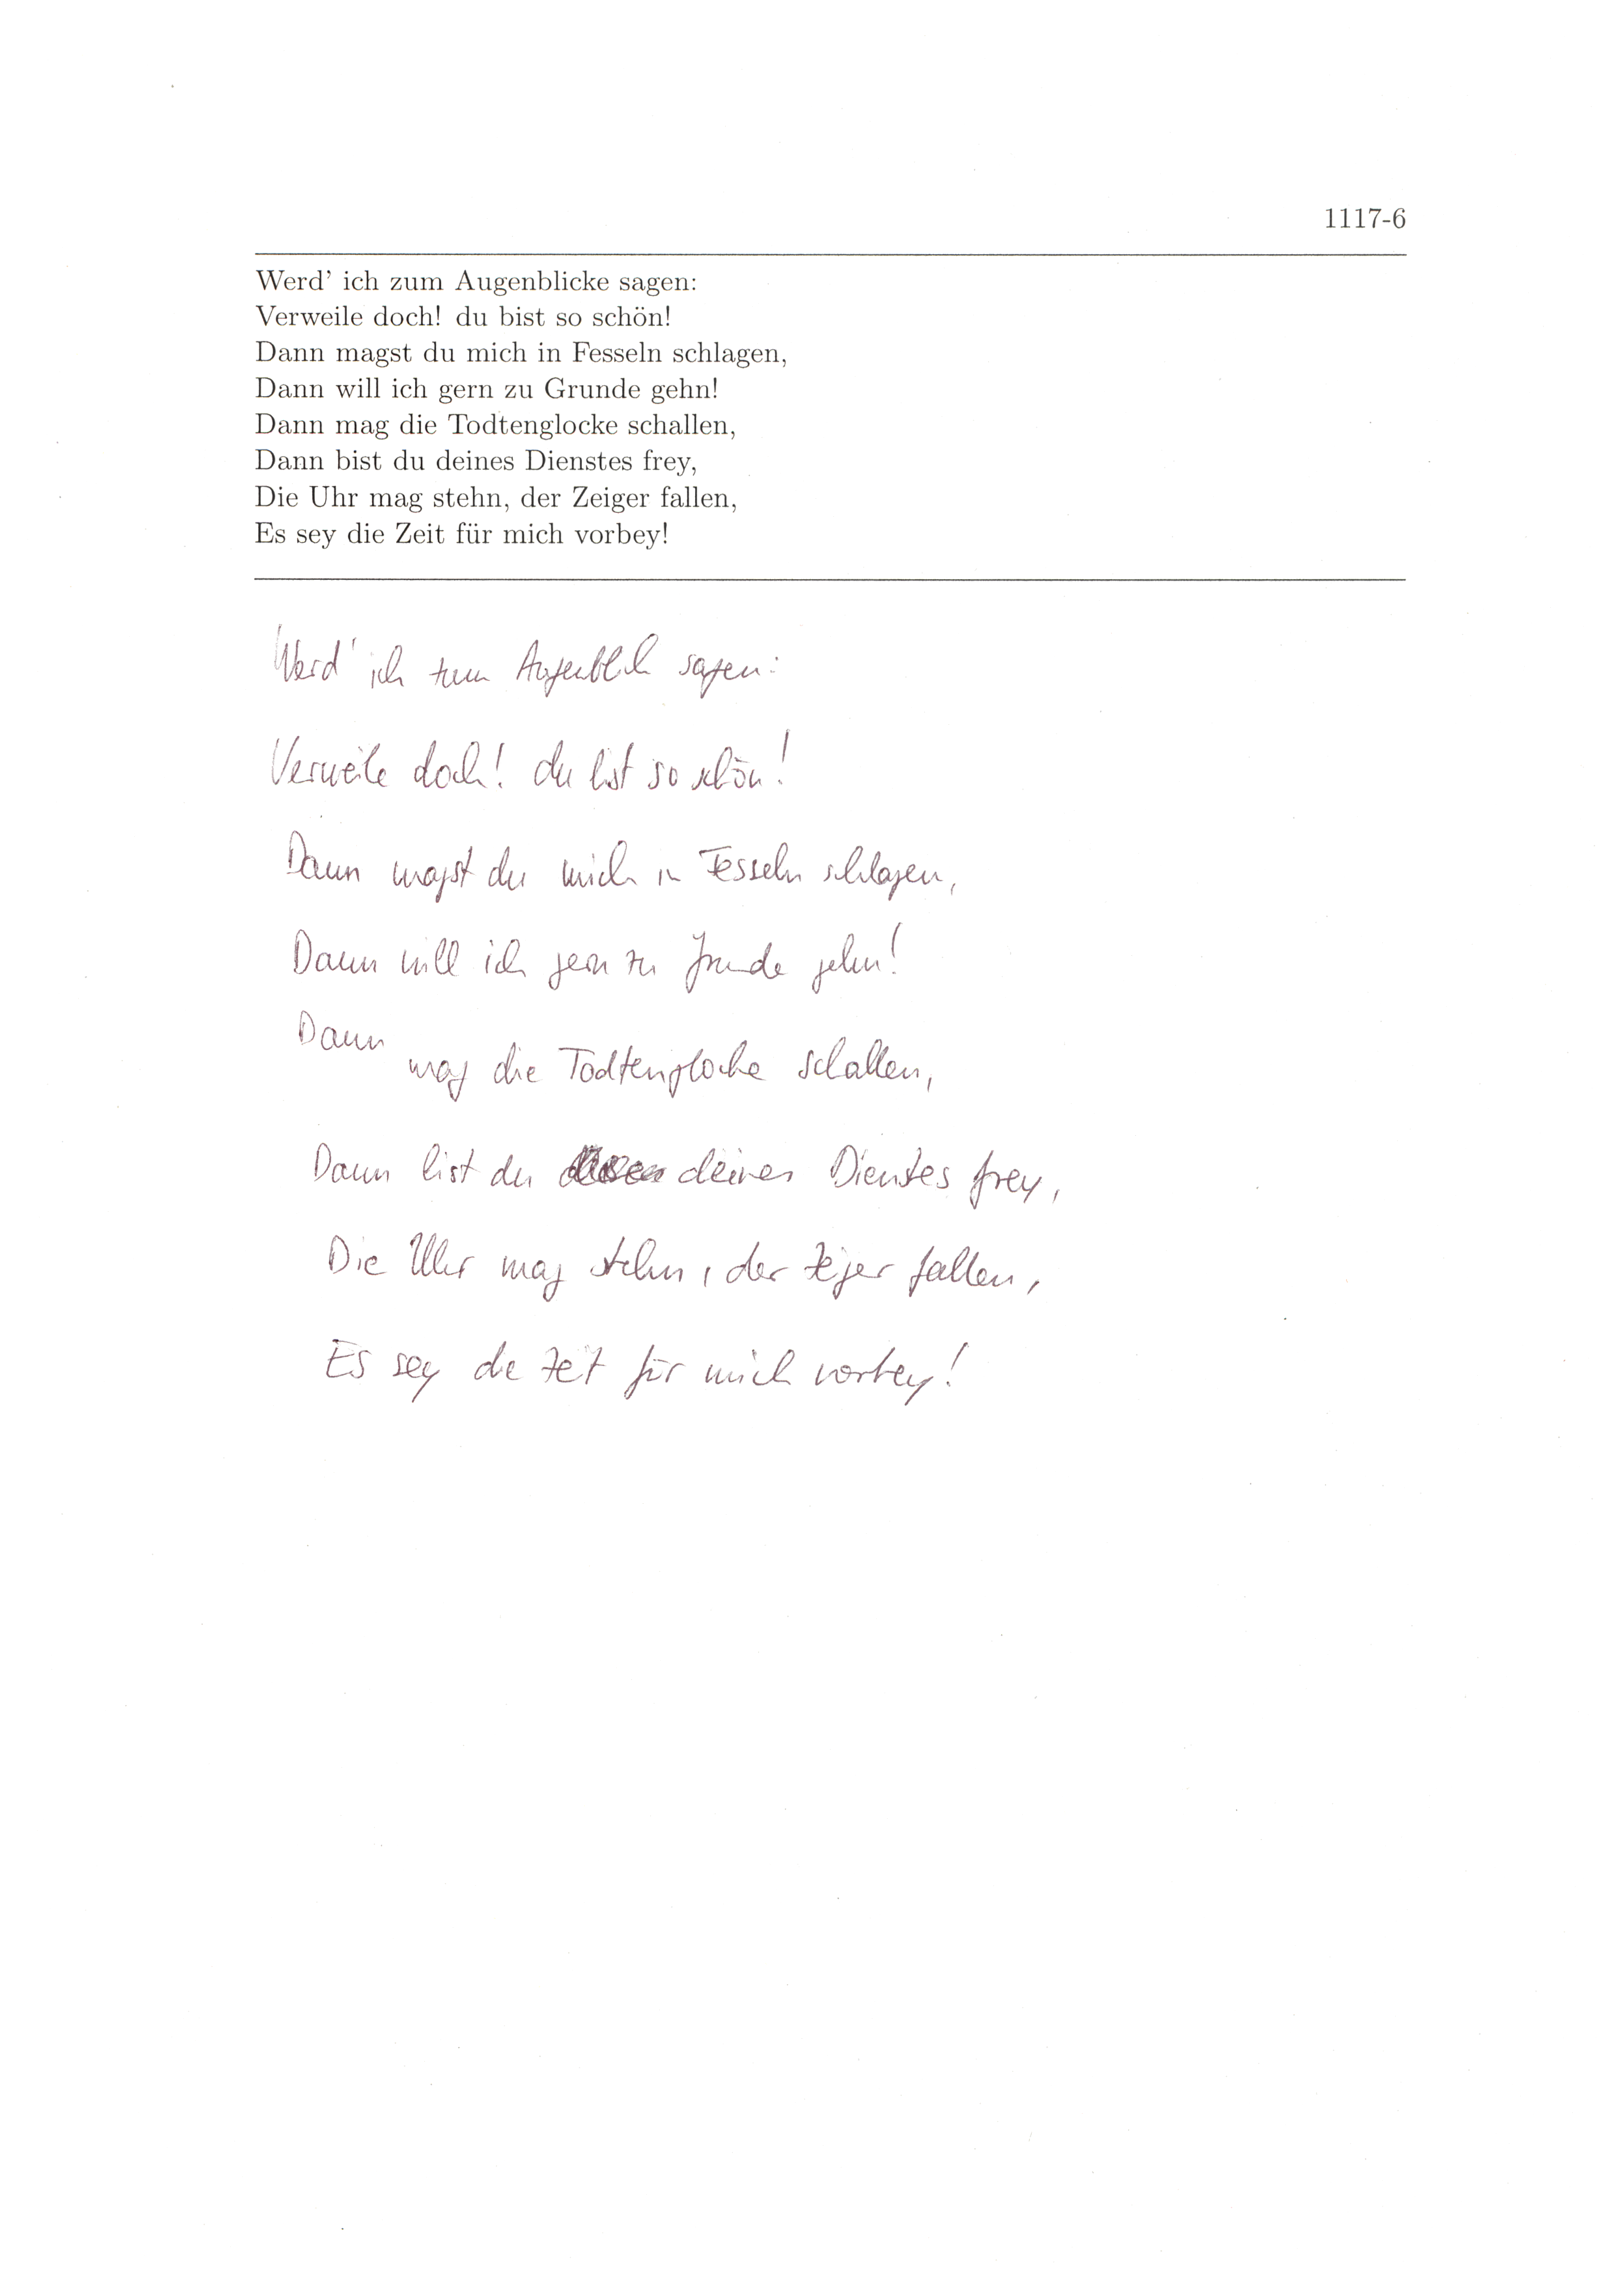 1117-6
Werd' ich zum Augenblicke sagen:
Verweile doch! du bist so schön!
Dann magst du mich in Fesseln schlagen,
Dann will ich gern zu Grunde gehn!
Dann mag die Todtenglocke schallen,
Dann bist du deines Dienstes frey,
Die Uhr mag stehn, der Zeiger fallen,
Es sey die Zeit für mich vorbey!
Werd' ich zum Augenblick sagen:
Verweile doch! du bist so schön!
Dann magst du mich in Fesseln schlagen,
Dann will ich gern zu Grunde gehn!
Dann mag die Todtenglocke schallen,
Dann bist du deines Dienstes frey,
Die Uhr mag stehn, der Zeiger fallen,
Es sey die Zeit für mich vorbey!